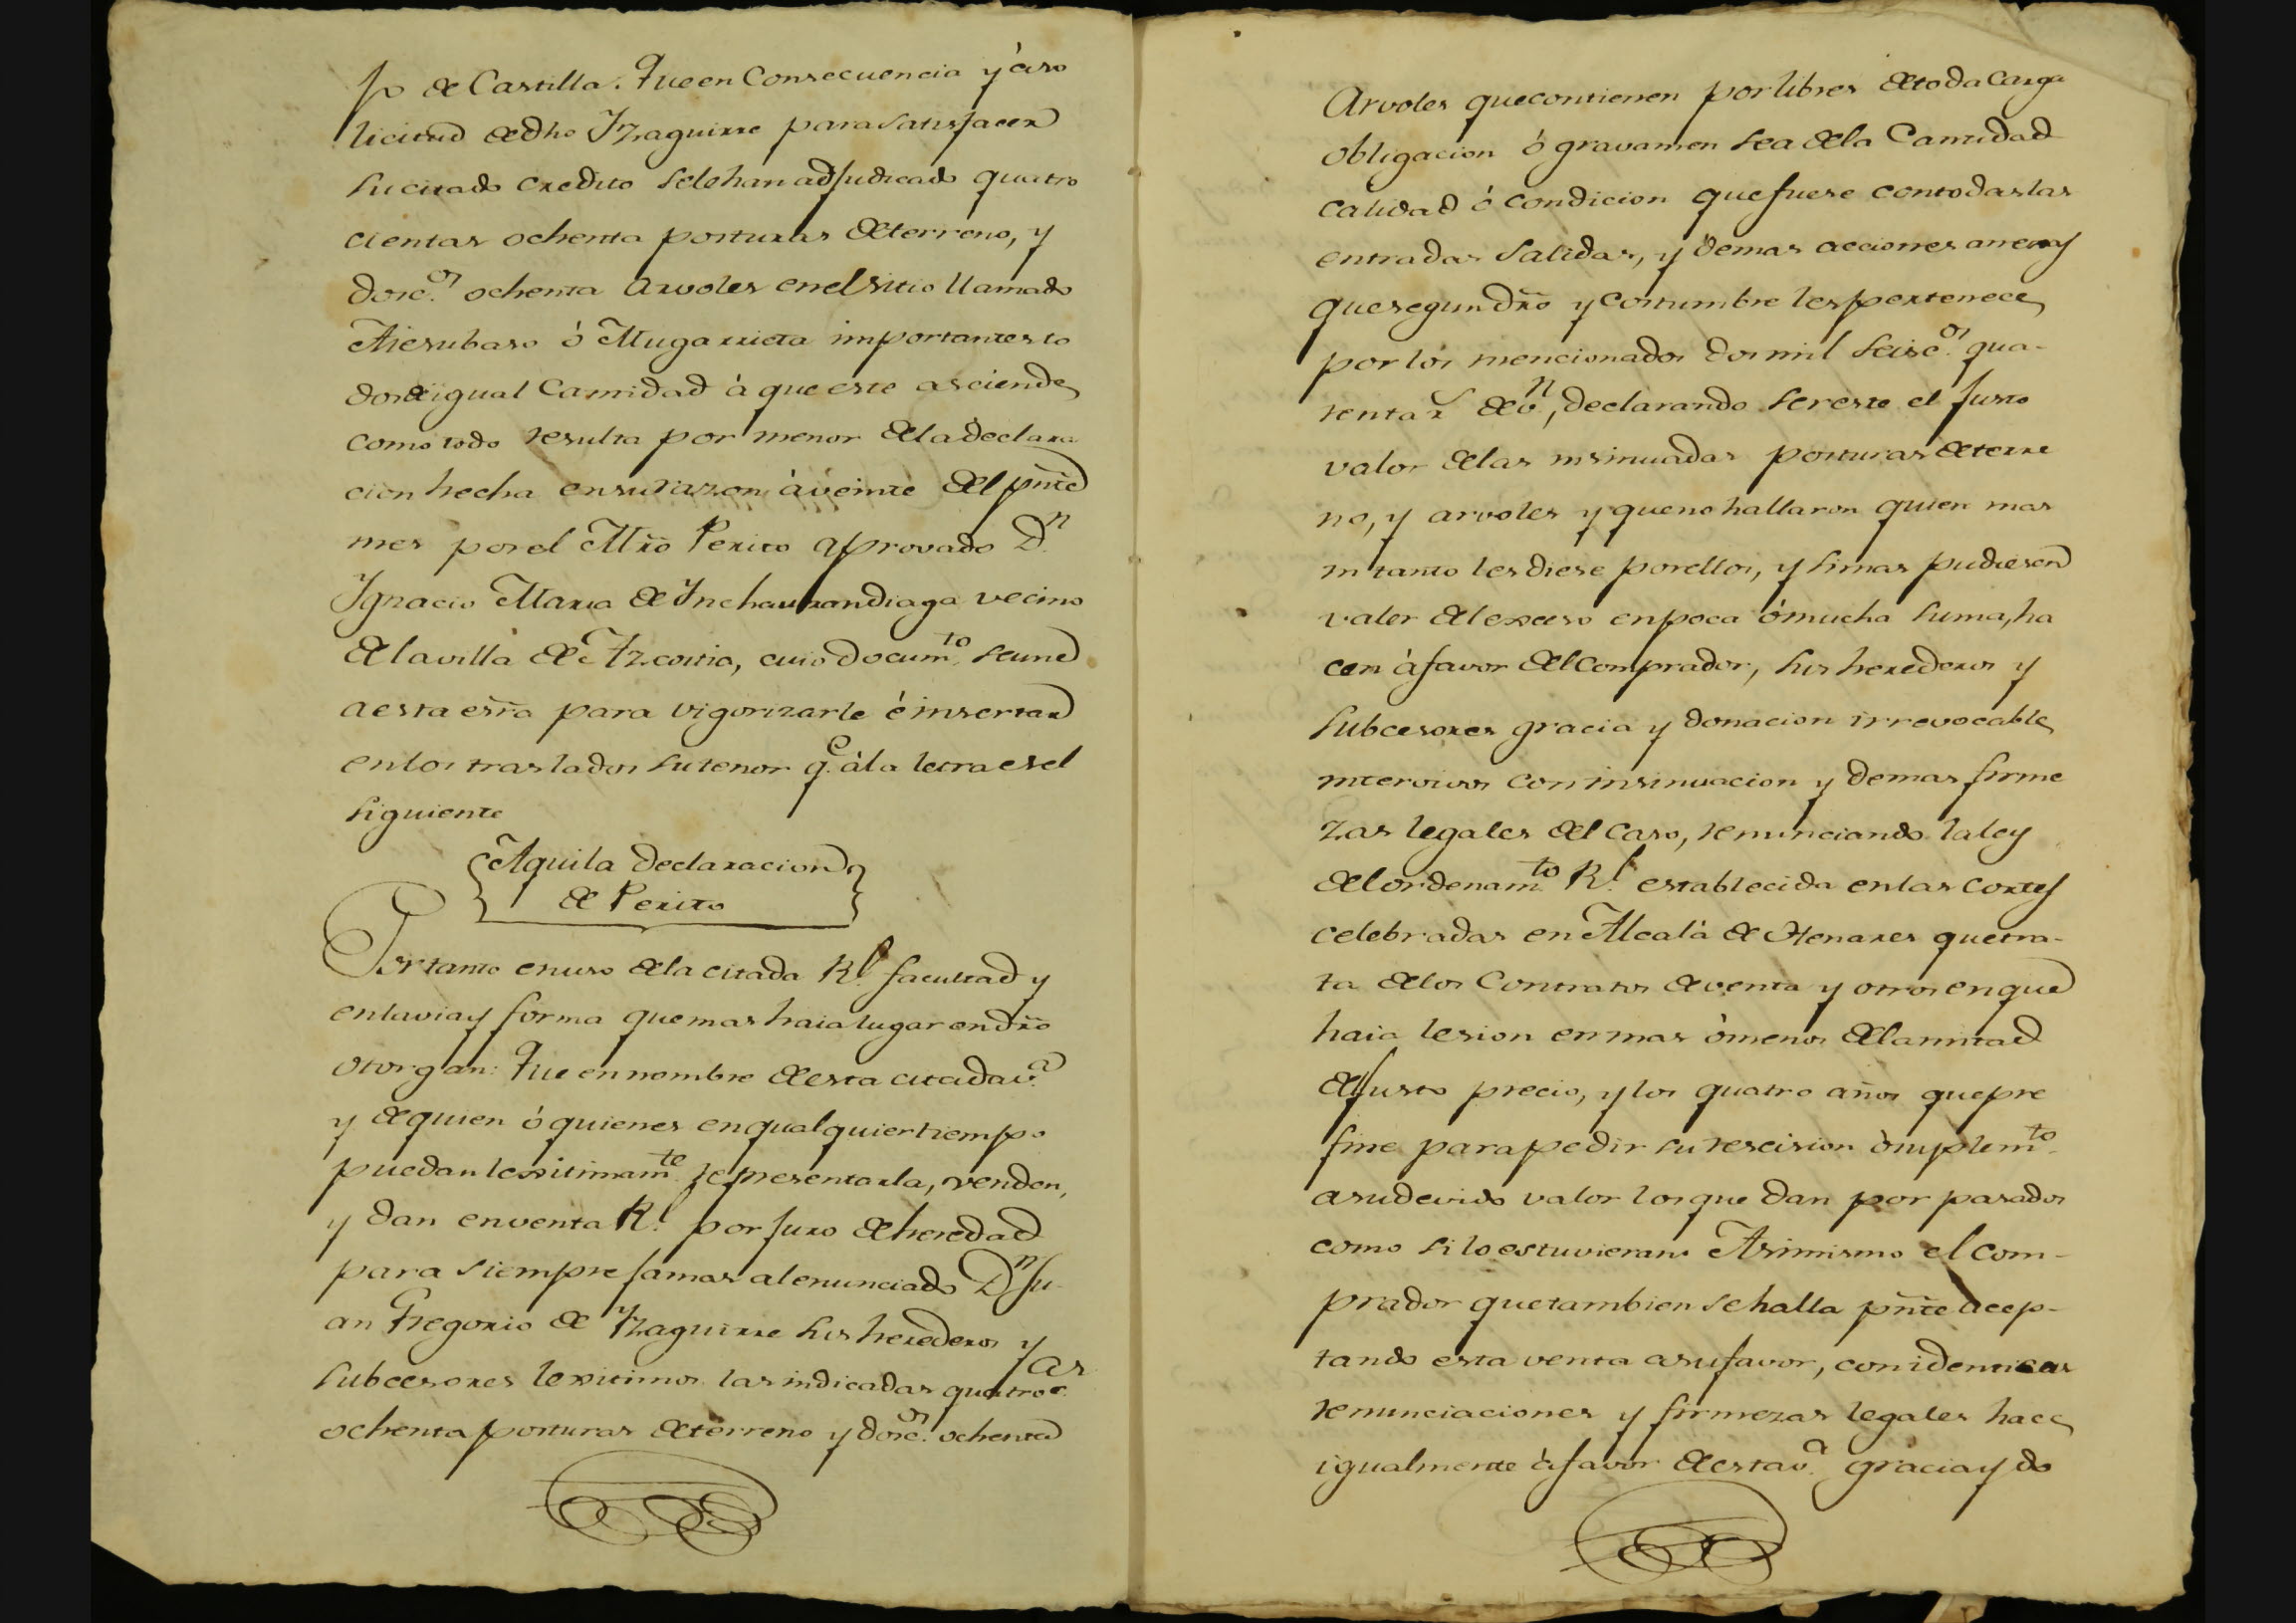 jo de Castilla. Que en consecuencia y á so
licitud de dho Yzaguirre para satisfacer
su citado credito se le han adjudicado quatro
cientas ochenta posturas de terreno, y
dosc.os ochenta arvoles en el sitio llamado
Aiesubaso ó Mugarrieta importantes to
dos é igual cantidad à que este asciende
como todo resulta por menor de la declara
cion hecha en su razon á veinte del pnte
mes por el Mro Perito aprovado Dn
Ygnacio Maria de Ynchaurrandiaga vecino
de la villa de Azcoitia, cuio docum.to se une
a esta esra para vigorizarle é insertar
en los traslados su tenor q.e à la letra es el
siguiente
Aqui la declaracion
de Perito
Por tanto en uso de la citada Rl. facultad y
en la via y forma que mas haia lugar en dro
otorgan: Que en nombre de esta citada v.a
y de quien ó quienes en qualquier tiempo
puedan lexitimam.te representarla, venden,
y dan en venta Rl. por juro de heredad
para siempre jamas al enunciado Dn Ju-
an Gregorio de Yzaguirre sus herederos y
subcesores lexitimos las indicadas quatroc.as
ochenta posturas de terreno y dosc.os ochenta
Arvoles que contienen por libres de toda carga
obligacion ó gravamen sea de la cantidad
calidad ó condicion que fuere con todas las
entradas salidas, y demas acciones anexas
que segun dro y costumbre les pertenece
por los mencionados dos mil seisc.os qua-
renta r.s de v.n, declarando ser este el justo
valor de las insinuadas posturas de terre
no, y arvoles y que no hallaron quien mas
ni tanto les diese por ellos, y si mas pudiesen
valer del exceso en poca ó mucha suma, ha
cen à favor del comprador, sus herederos y
subcesores gracia y donacion irrevocable
intervivos con insinuacion y demas firme
zas legales del caso, renunciando la ley
del ordenam.to Rl. establecida en las cortes
celebradas en Alcalá de Henares que tra-
ta de los contratos de venta y otros en que
haia lesion en mas ò menos de la mitad
del justo precio, y los quatro años que pre
fine para pedir su rescision ò suplem.to
a su devido valor los que dan por pasados
como si lo estuvieran. Asimismo el com-
prador que tambien se halla pnte acep-
tando esta venta a su favor, con identicas
renunciaciones y firmezas legales hace
igualmente á favor de esta v.a gracia y do